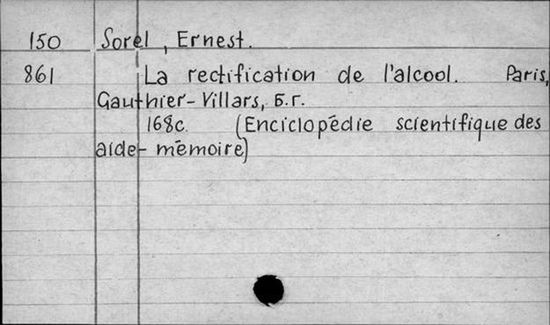 150 Sorel, Ernest.
861 La rectification de l'alcool. Paris,
Gauthier-Villars, Б.г.
168с. (Enciclopédie scientifique des
aide-mémoire)